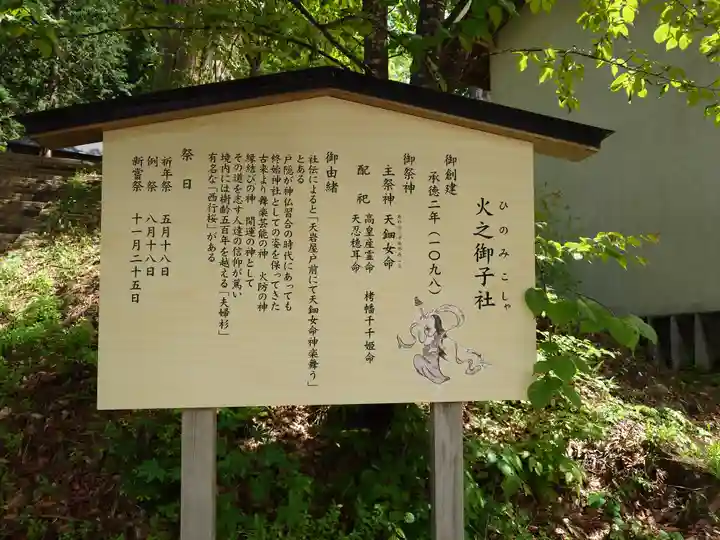 火之御子社
ひのみこしゃ
御創建
承徳二年(一〇九八)
御祭神
主祭神 天鈿女命
配祀 高皇産霊命 栲幡千千姫命
天忍穂耳命
御由緒
社伝によると「天岩屋戸前にて天鈿女命神楽舞う」
とある
戸隠が神仏習合の時代にあっても
終始神社としての姿を保ってきた
古来より舞楽芸能の神 火防の神
縁結びの神 開運の神として
その道を志す人達の信仰が篤い
境内には樹齢五百年を越える「夫婦杉」
有名な「西行桜」がある
祭日
祈年祭 五月十八日
例祭 八月十八日
新嘗祭 十一月二十五日